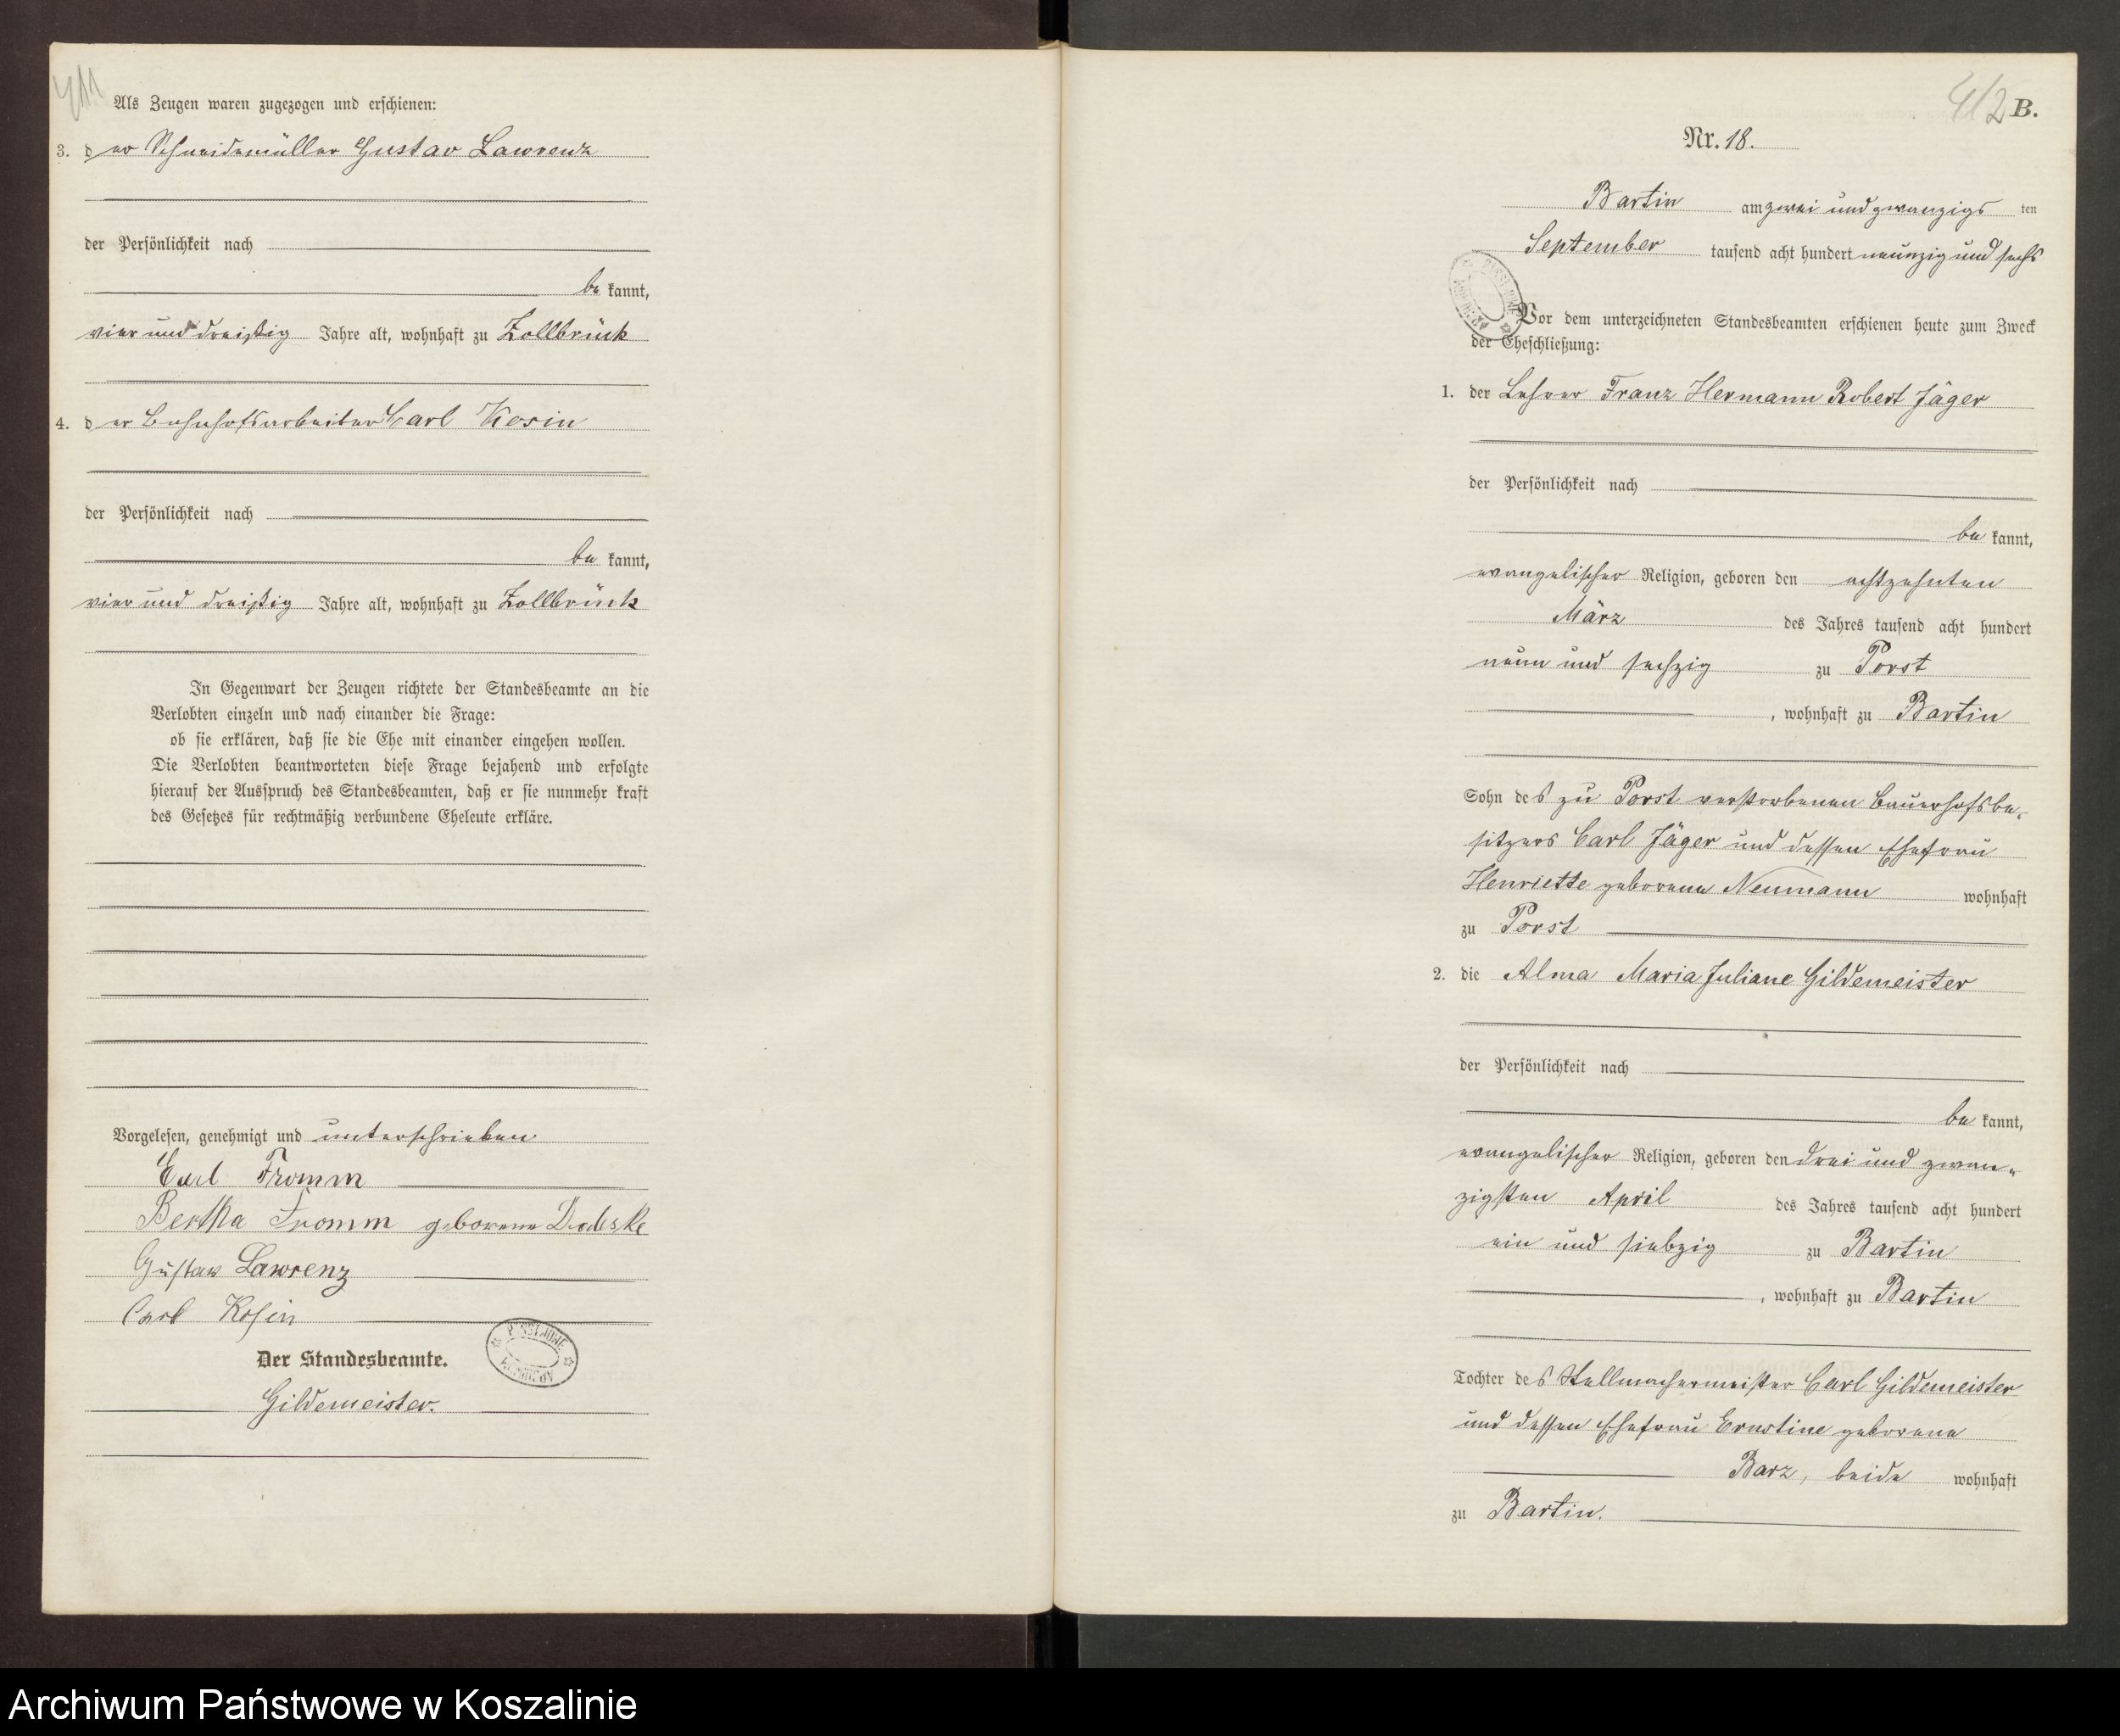 411
Als Zeugen waren zugezogen und erschienen:
3. der Schneidemüller Gustav Lawrenz
der Persönlichkeit nach
be kannt,
vier und dreißig Jahre alt, wohnhaft zu Zollbrück
4. der Bahnhofsarbeiter Carl Kosin
der Persönlichkeit nach
be kannt,
vier und dreißig Jahre alt, wohnhaft zu Zollbrück
In Gegenwart der Zeugen richtete der Standesbeamte an die
Verlobten einzeln und nach einander die Frage:
ob sie erklären, daß sie die Ehe mit einander eingehen wollen.
Die Verlobten beantworteten diese Frage bejahend und erfolgte
hierauf der Ausspruch des Standesbeamten, daß er sie nunmehr kraft
des Gesetzes für rechtmäßig verbundene Eheleute erkläre.
Vorgelesen, genehmigt und unterschrieben
Carl Fromm
Bertha Fromm geborene
Gustav Lawrenz
Carl Kosin
Der Standesbeamte.
Gildemeister.
412 B.
Nr. 18.
Bartin am zwei und zwanzigs ten
September tausend acht hundert neunzig und sechs
Vor dem unterzeichneten Standesbeamten erschienen heute zum Zweck
der Eheschließung:
1. der Lehrer Franz Hermann Robert Jäger
der Persönlichkeit nach
be kannt,
evangelischer Religion, geboren den achtzehnten
März des Jahres tausend acht hundert
neun und sechzig zu Porst
, wohnhaft zu Bartin
Sohn des zu Porst verstorbenen Bauerhofsbe-
sitzers Carl Jäger und dessen Ehefrau
Henriette geborene Neumann wohnhaft
zu Porst
2. die Alma Maria Juliane Gildemeister
der Persönlichkeit nach
be kannt,
evangelischer Religion, geboren den drei und zwan-
zigsten April des Jahres tausend acht hundert
ein und siebzig zu Bartin
, wohnhaft zu Bartin
Tochter des Stellmachermeister Carl Gildemeister
und dessen Ehefrau Ernstine geborene
Barz, beide wohnhaft
zu Bartin.
Archiwum Państwowe w Koszalinie